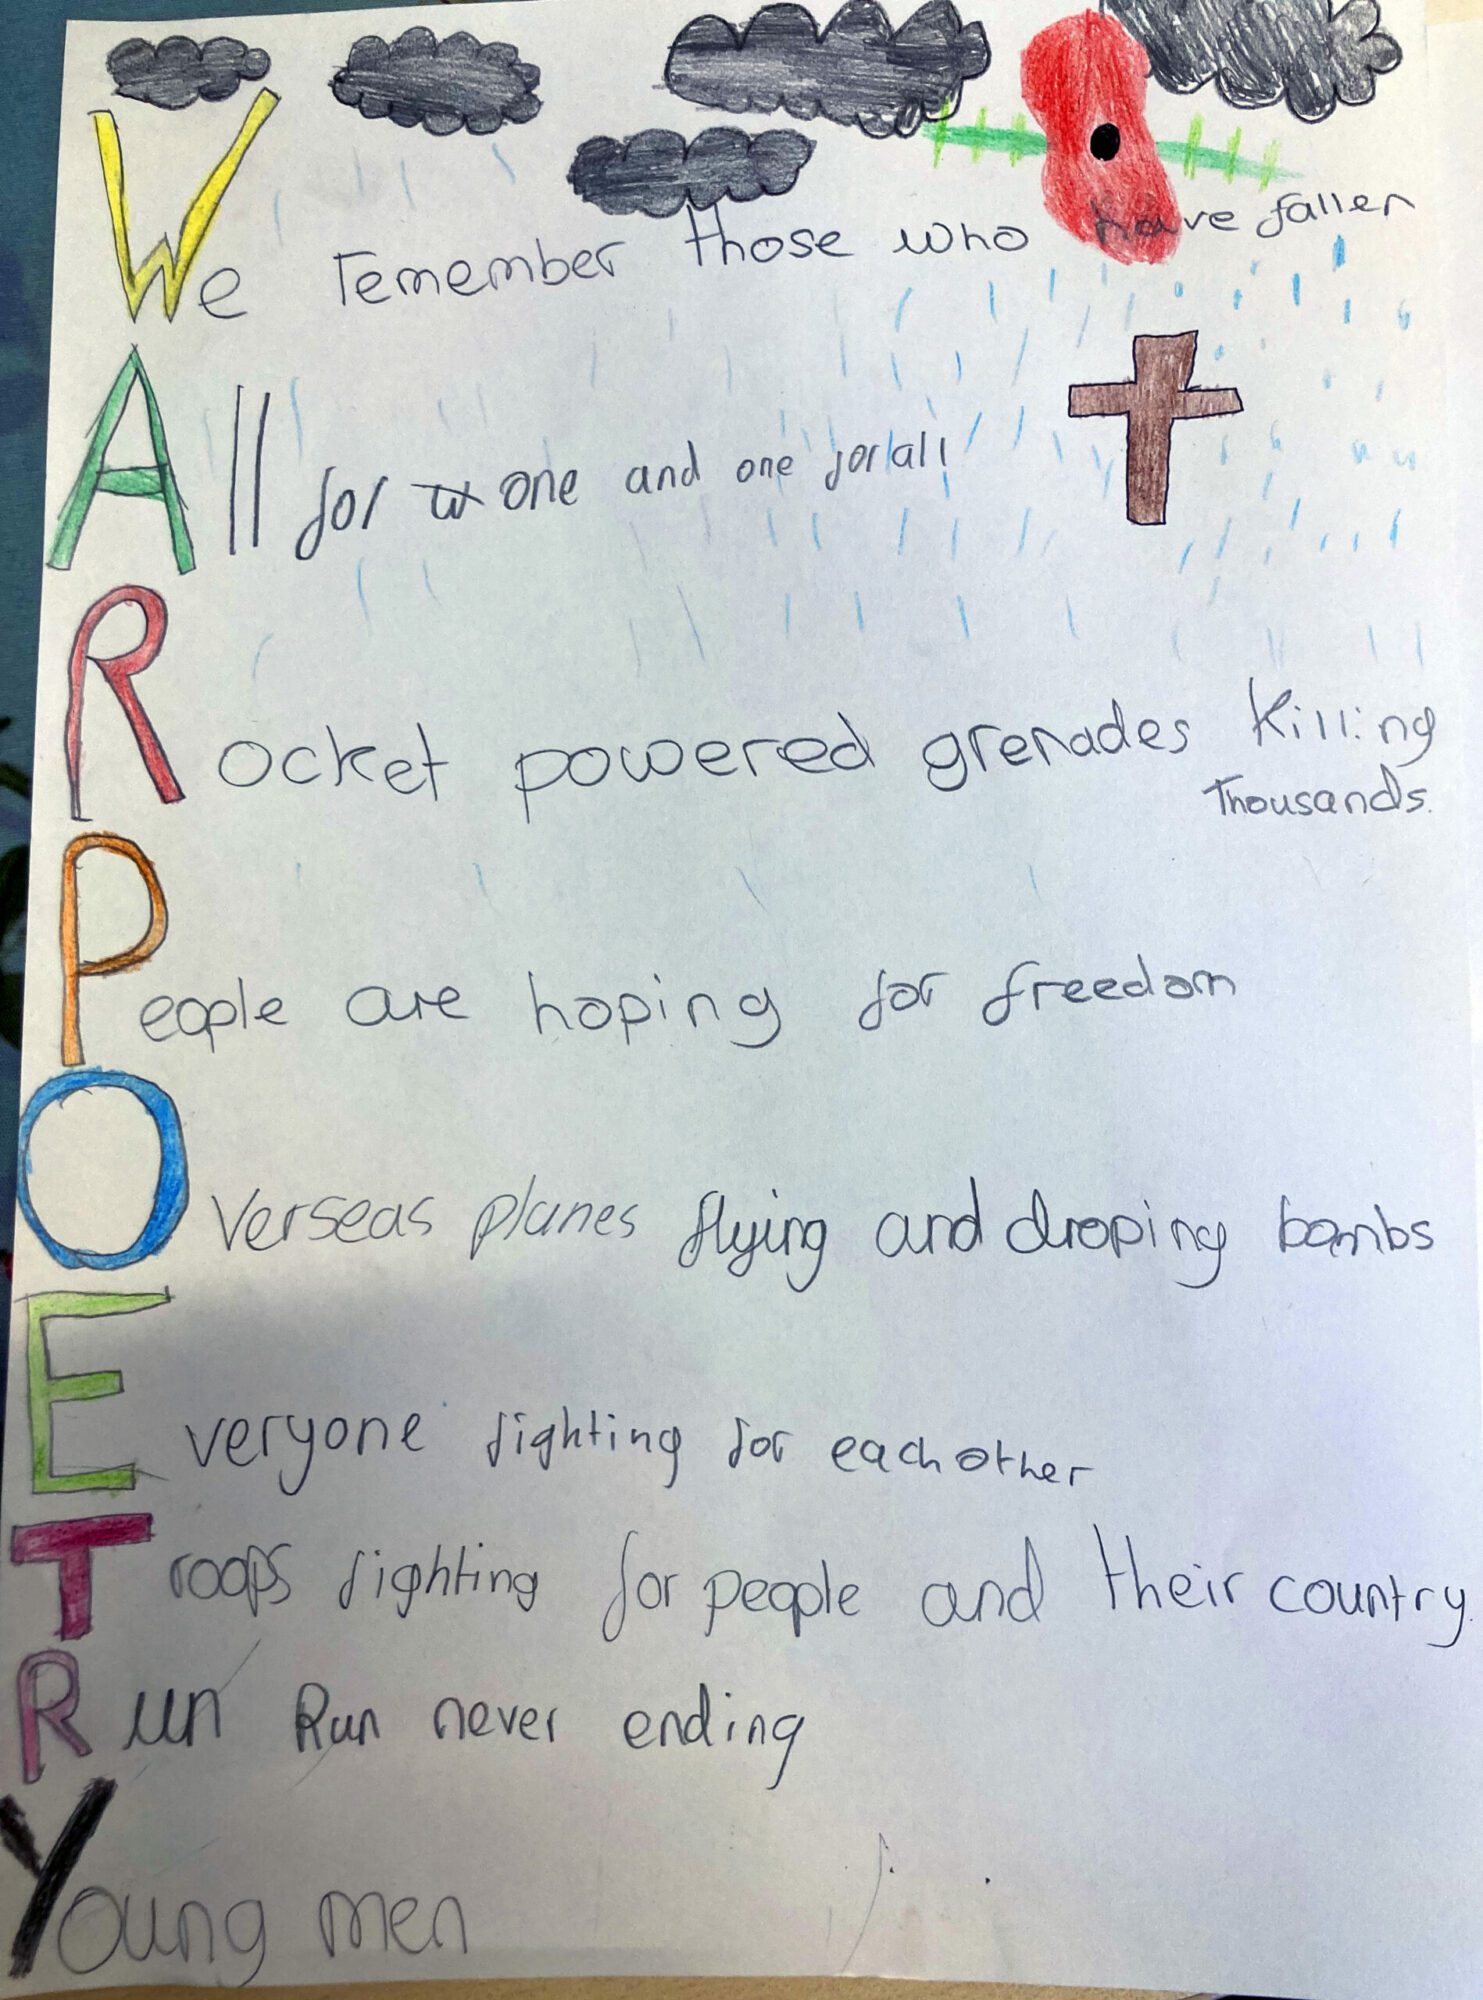 We remember those who have fallen
All for one and one for all
Rocket powered grenades Killing
Thousands.
People are hoping for freedom
Overseas planes flying and droping bombs
Everyone fighting for each other
Troops fighting for people and their country.
Run Run never ending
Young men